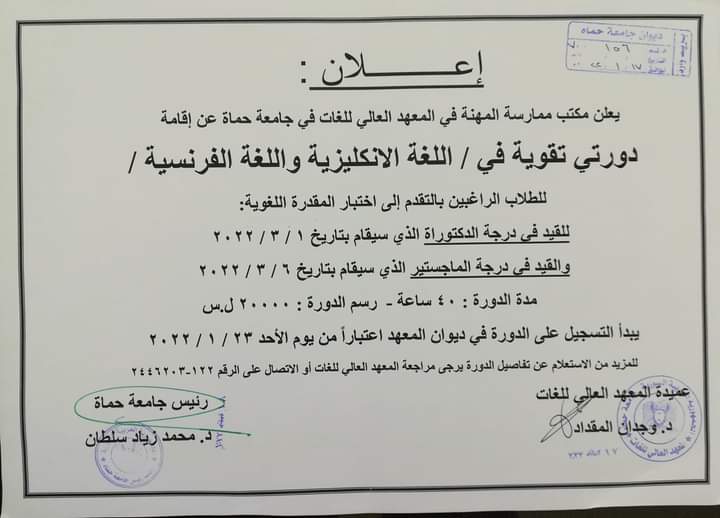 ديوان جامعة حماه
إعـــــلان :
يعلن مكتب ممارسة المهنة في المعهد العالي للغات في جامعة حماة عن إقامة
دورتي تقوية في / اللغة الانكليزية واللغة الفرنسية /
للطلاب الراغبين بالتقدم إلى اختبار المقدرة اللغوية:
للقيد في درجة الدكتوراة الذي سيقام بتاريخ ١ / ٣ / ٢٠٢٢
والقيد في درجة الماجستير الذي سيقام بتاريخ ٦ / ٣ / ٢٠٢٢
مدة الدورة : ٤٠ ساعة - رسم الدورة : ٢٠٠٠٠ ل.س
يبدأ التسجيل على الدورة في ديوان المعهد اعتباراً من يوم الأحد ٢٣ / ١ / ٢٠٢٢
للمزيد من الاستعلام عن تفاصيل الدورة يرجى مراجعة المعهد العالي للغات أو الاتصال على الرقم ١٢٢-٢٤٤٦٢٠٣
عميدة المعهد العالي للغات
د. وجدان المقداد
رئيس جامعة حماة
د. محمد زياد سلطان